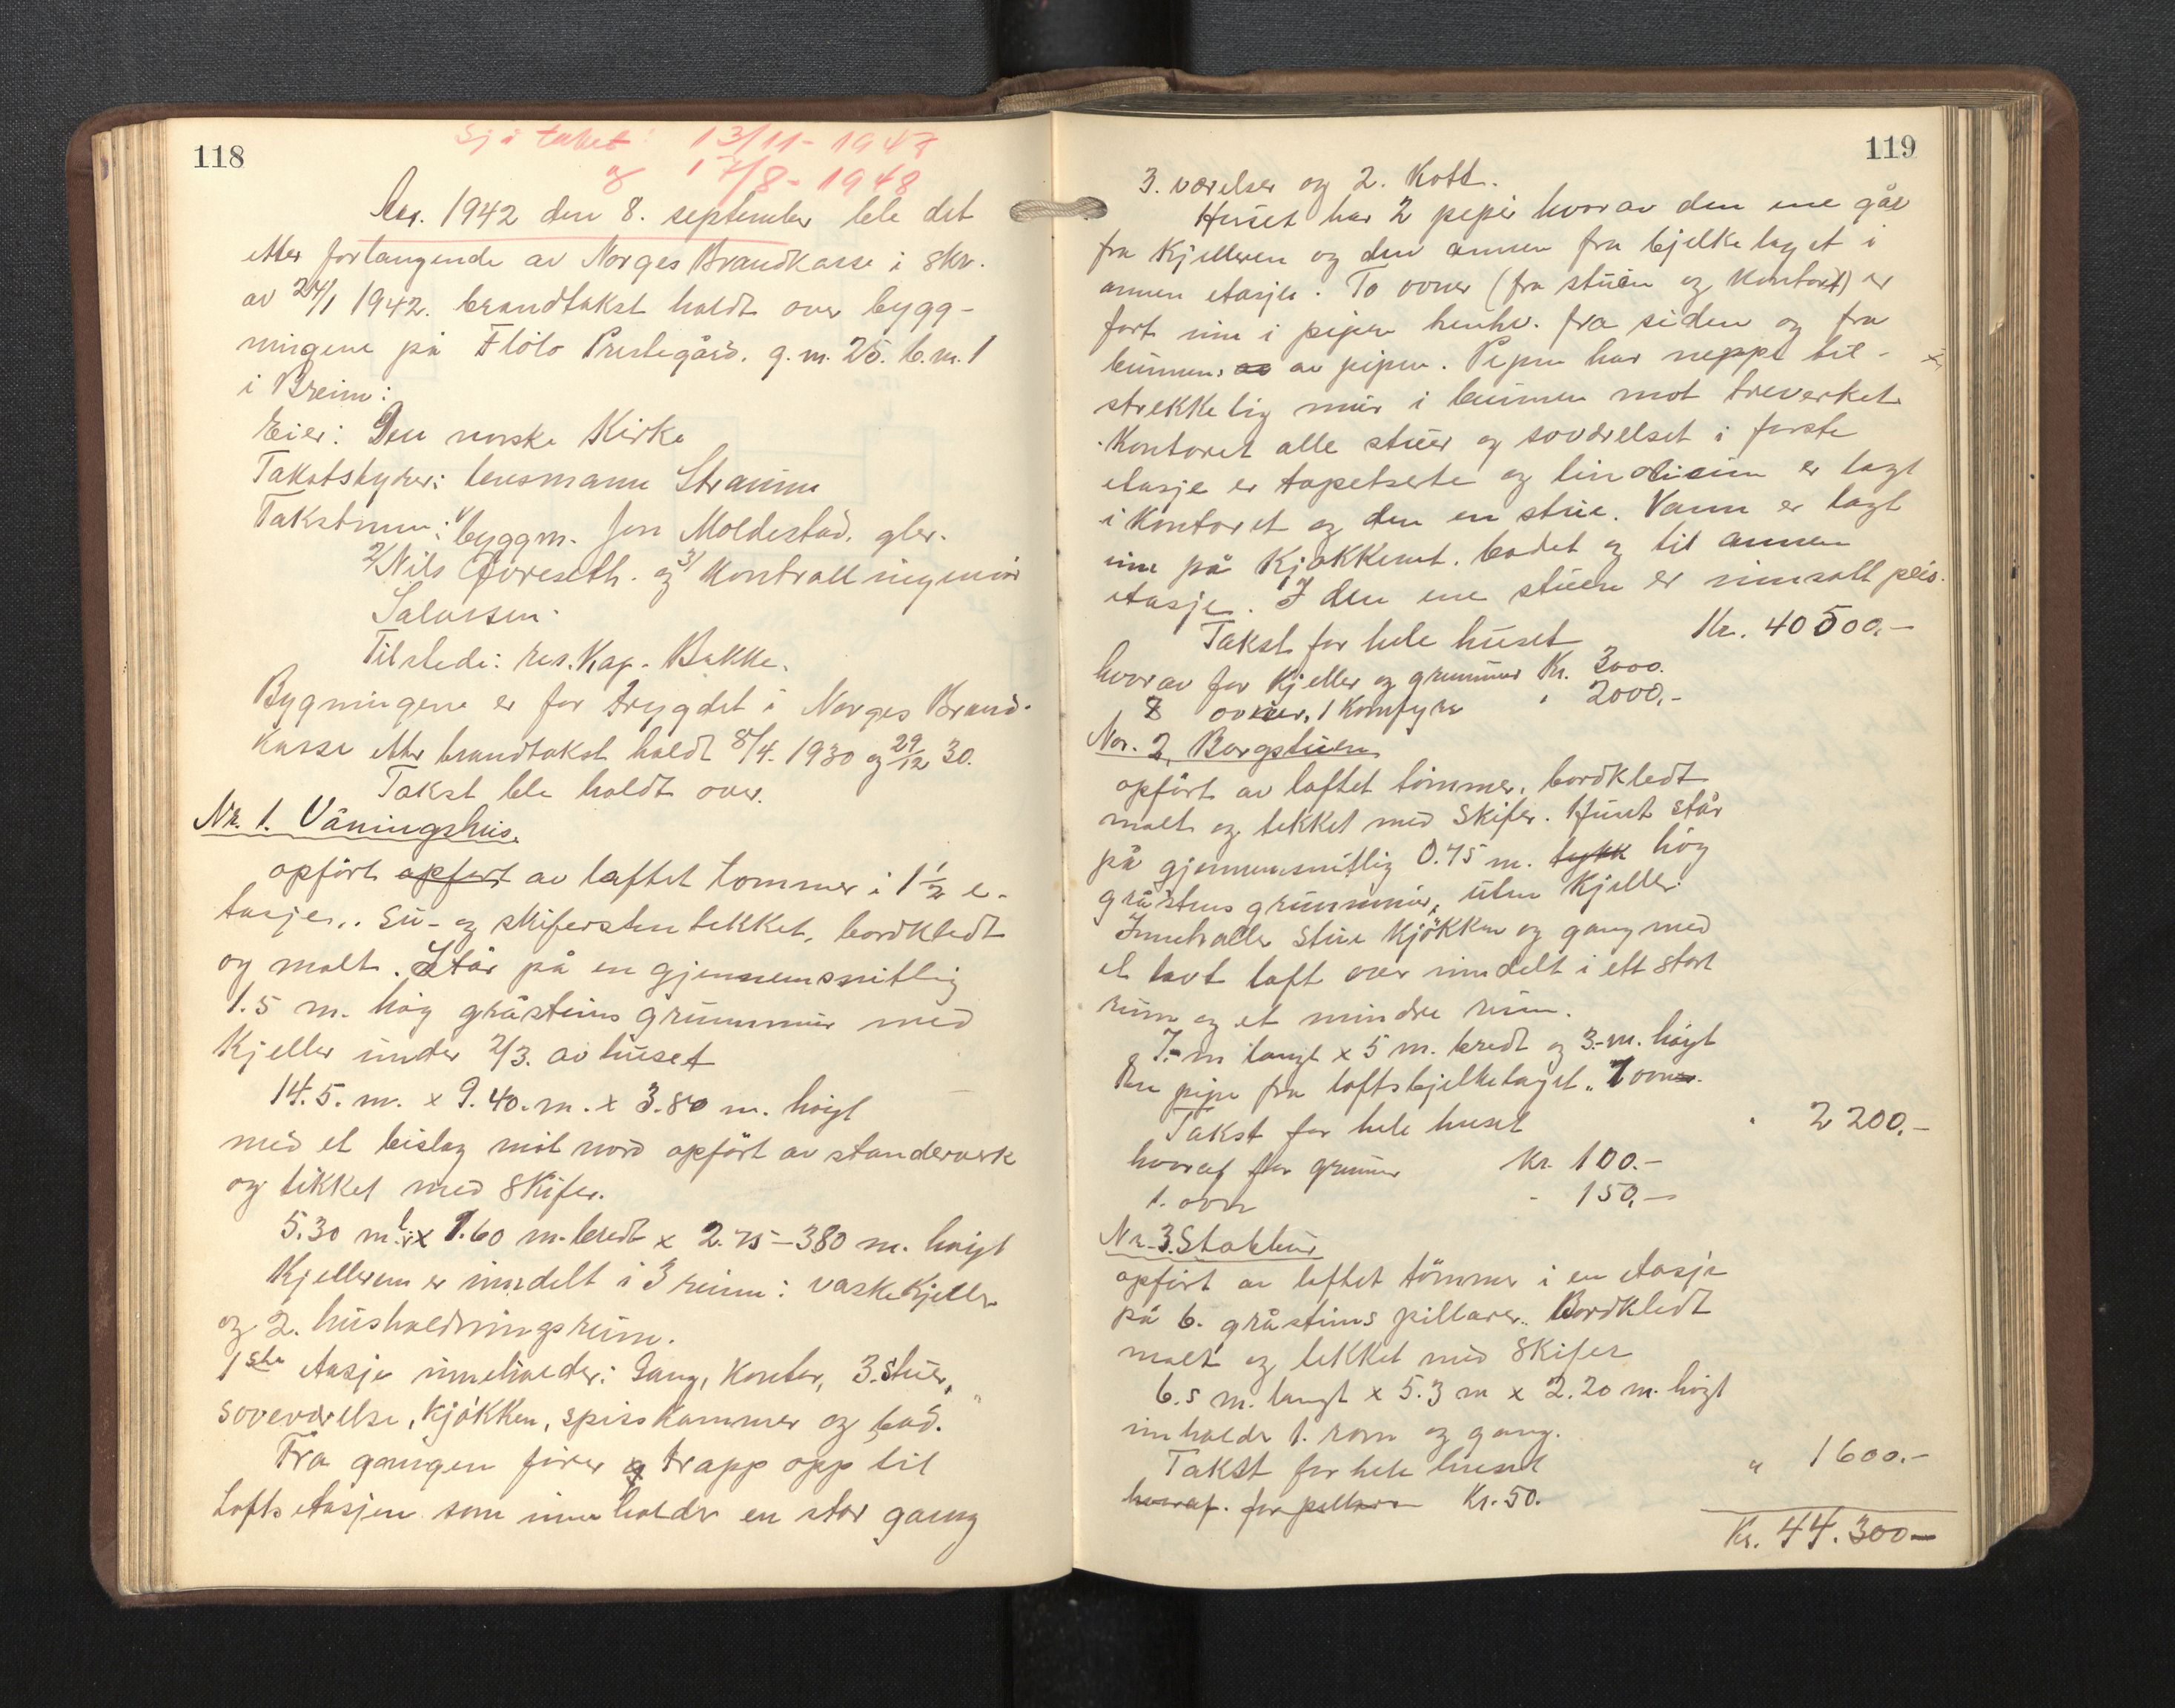 118
Sjå takst 13/11 - 1947
og 17/8 - 1948
Aar. 1942 den 8. september ble det
etter forlangende av Norges Brandkasse i skr.
av 24/1 1942. brandtakst holdt over bygg-
ningene på Flölo Prestegård. g.m. 25. b.m. 1
i Breim:
Eier: Den norske Kirke
Takstskyrer: lensmann Straume
Takstmenn: 1/ byggm. Jon Moldestad. gbr.
2/ Nils Övreseth. og 3/ Kontrollingeniör
Salvesen.
Tilstede: res. Kap. Bakke.
Bygningene er for trygdet i Norges Brand-
kasse etter brandtakst holdt 8/4. 1930 og 29/12 30.
Takst ble holdt over.
Nr. 1. Våningshus.
opfört opfört av laftet tømmer i 1 1/2 e-
tasjer. Su- og skifersten tekket, bordkledt
og malt. Står på en gjennemsnitlig
1.5 m. høg gråsteins grunnmur med
Kjeller under 2/3. av huset
14.5. m. x 9.40. m. x 3.80 m. höigt
med et bislag mot nord opfört av standerverk
og tekket med skifer.
5.30 m l. x 1.60 m. bredt x 2.75 - 380 m. høigt
Kjelleren er inndelt i 3 rum: vaskekjeller
og 2. husholdningsrum.
1ste etasje inneholder: Gang, Kontor, 3. stuer,
soveværelse, Kjøkken, spisskammer og bad.
Fra gangen fører og trapp opp til
Loftsetasjen som inneholder en stor gang
119
3. værelser og 2. Kott.
Huset har 2 piper hvorav den ene går
fra Kjelleren og den annen fra bjelkelaget i
annen etasje. To ovner (fra stuen og kontoret) er
ført inn i pipen henhv. fra siden og fra
bunnen. av av pipen. Pipen har neppe til-
strekkelig mur i bunnen mot treverket.
Kontoret alle stuer og soværelset i første
etasje er tapetserte og linolium er lagt
i Kontoret og den en stue. Vann er lagt
inn på Kjøkkenet. badet og til annen
etasje. I den ene stuen er innsatt peis.
Takst for hele huset Kr. 40500.-
hvorav for Kjeller og grunnmur Kr. 3000.
8 ovner, 1 Komfyre " 2000.-
Nr. 2. Borgstuen
opfört av laftet tömmer, bordkledt
malt og tekket med Skifer. Huset står
på gjennemsnitlig 0.75 m. tykk høg
gråsteins grunnmur, uten Kjeller.
Inneholder Stue Kjökken og gang med
et lavt loft over inndelt i ett stort
rum og et mindre rum.
7.- m langt x 5 m. bredt og 3.- m. högt
En pipe fra loftsbjelkelaget. 1 ovn.
Takst for hele huset " 2 200.-
hvoraf for grunnmur Kr. 100.-
1. ovn - 150.-
Nr. 3. Stabbur
opfört av laftet tömmer i en etasje
på 6. gråsteins pillarer. Bordkledt
malt og tekket med Skifer
6.5 m. langt x 5.3 m x 2.20 m. högt
inholder 1. rom og gang.
Takst for hele huset " 1600.-
hvoraf. for pillarer Kr. 50.
Kr. 44.300-